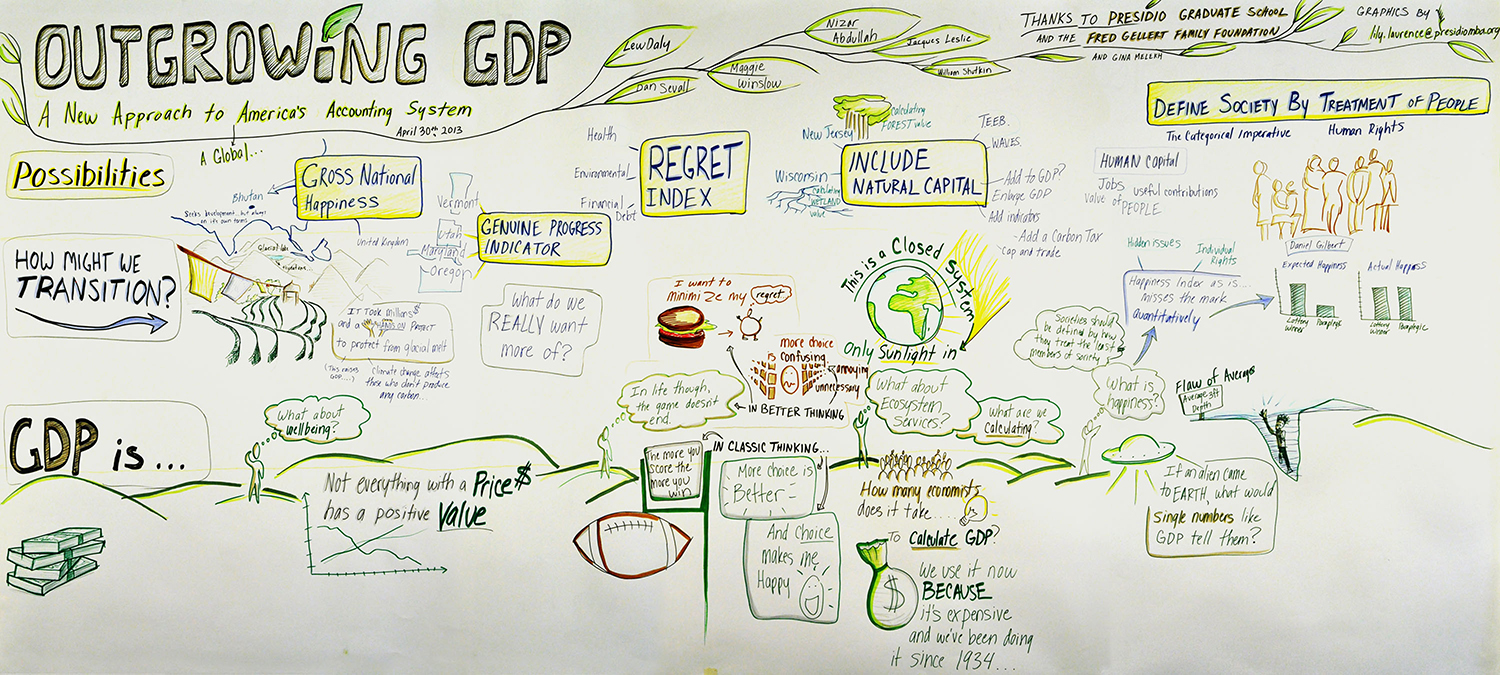 OUTGROWING GDP
A New Approach to America's Accounting System
April 30th 2013
Lew Daly
Dan Sevall
Maggie
Winslow
Nizar
Abdullah
Jacques Leslie
William Shutkin
THANKS TO PRESIDIO GRADUATE SCHOOL
AND THE FRED GELLERT FAMILY FOUNDATION
AND GINA
GRAPHICS BY
lily.laurence@presidiomba.org
Possibilities
A Global...
GROSS NATIONAL
HAPPINESS
Bhutan
Seeks development, but always
on its own terms
Glacial lake
United Kingdom
Vermont
Utah
Maryland
Oregon
GENUINE PROGRESS
INDICATOR
Health
Environmental
Financial
Debt
REGRET
INDEX
New Jersey
Calculating
FOREST value
Wisconsin
Calculating
WETLAND
value
INCLUDE
NATURAL CAPITAL
TEEB.
WAVES.
Add to GDP?
Enlarge GDP
Add indicators
- Add a Carbon Tax
cap and trade
DEFINE SOCIETY BY TREATMENT OF PEOPLE
The Categorical Imperative
Human Rights
HUMAN CAPITAL
Jobs, useful contributions
Value of
PEOPLE
HOW MIGHT WE
TRANSITION?
IT TOOK millions$
and a HANDS ON PROJECT
to protect from glacial melt
(This raises
GDP.....)
Climate change affects
those who don't produce
any carbon...
What do we
REALLY want
more of?
I want to
minimize my regret
more choice
is confusing
annoying
unnecessary
IN BETTER THINKING
This is a Closed System
Only Sunlight in
Hidden issues
Individual
Rights
Happiness Index as is....
misses the mark
quantitatively
Societies should
be defined by how
they treat the least
members of society
Daniel Gilbert
Expected Happiness
Lottery
Winner
Paraplegic
Actual Happiness
Lottery
Winner
Paraplegic
GDP is...
What about
wellbeing?
Not everything with a Price$
has a positive Value
In life though,
the game doesn't
end.
IN CLASSIC THINKING...
The more you
score the
more you
win
More choice is
Better-
And choice
makes me
Happy
What about
Ecosystem
Services?
What are we
calculating?
How many economists
does it take.....
To Calculate GDP?
$
We use it now
BECAUSE
it's expensive
and we've been doing
it since 1934...
What is
happiness?
Flaw of Averages
Average 3ft
Depth
If an alien came
to EARTH, what would
single numbers like
GDP tell them?